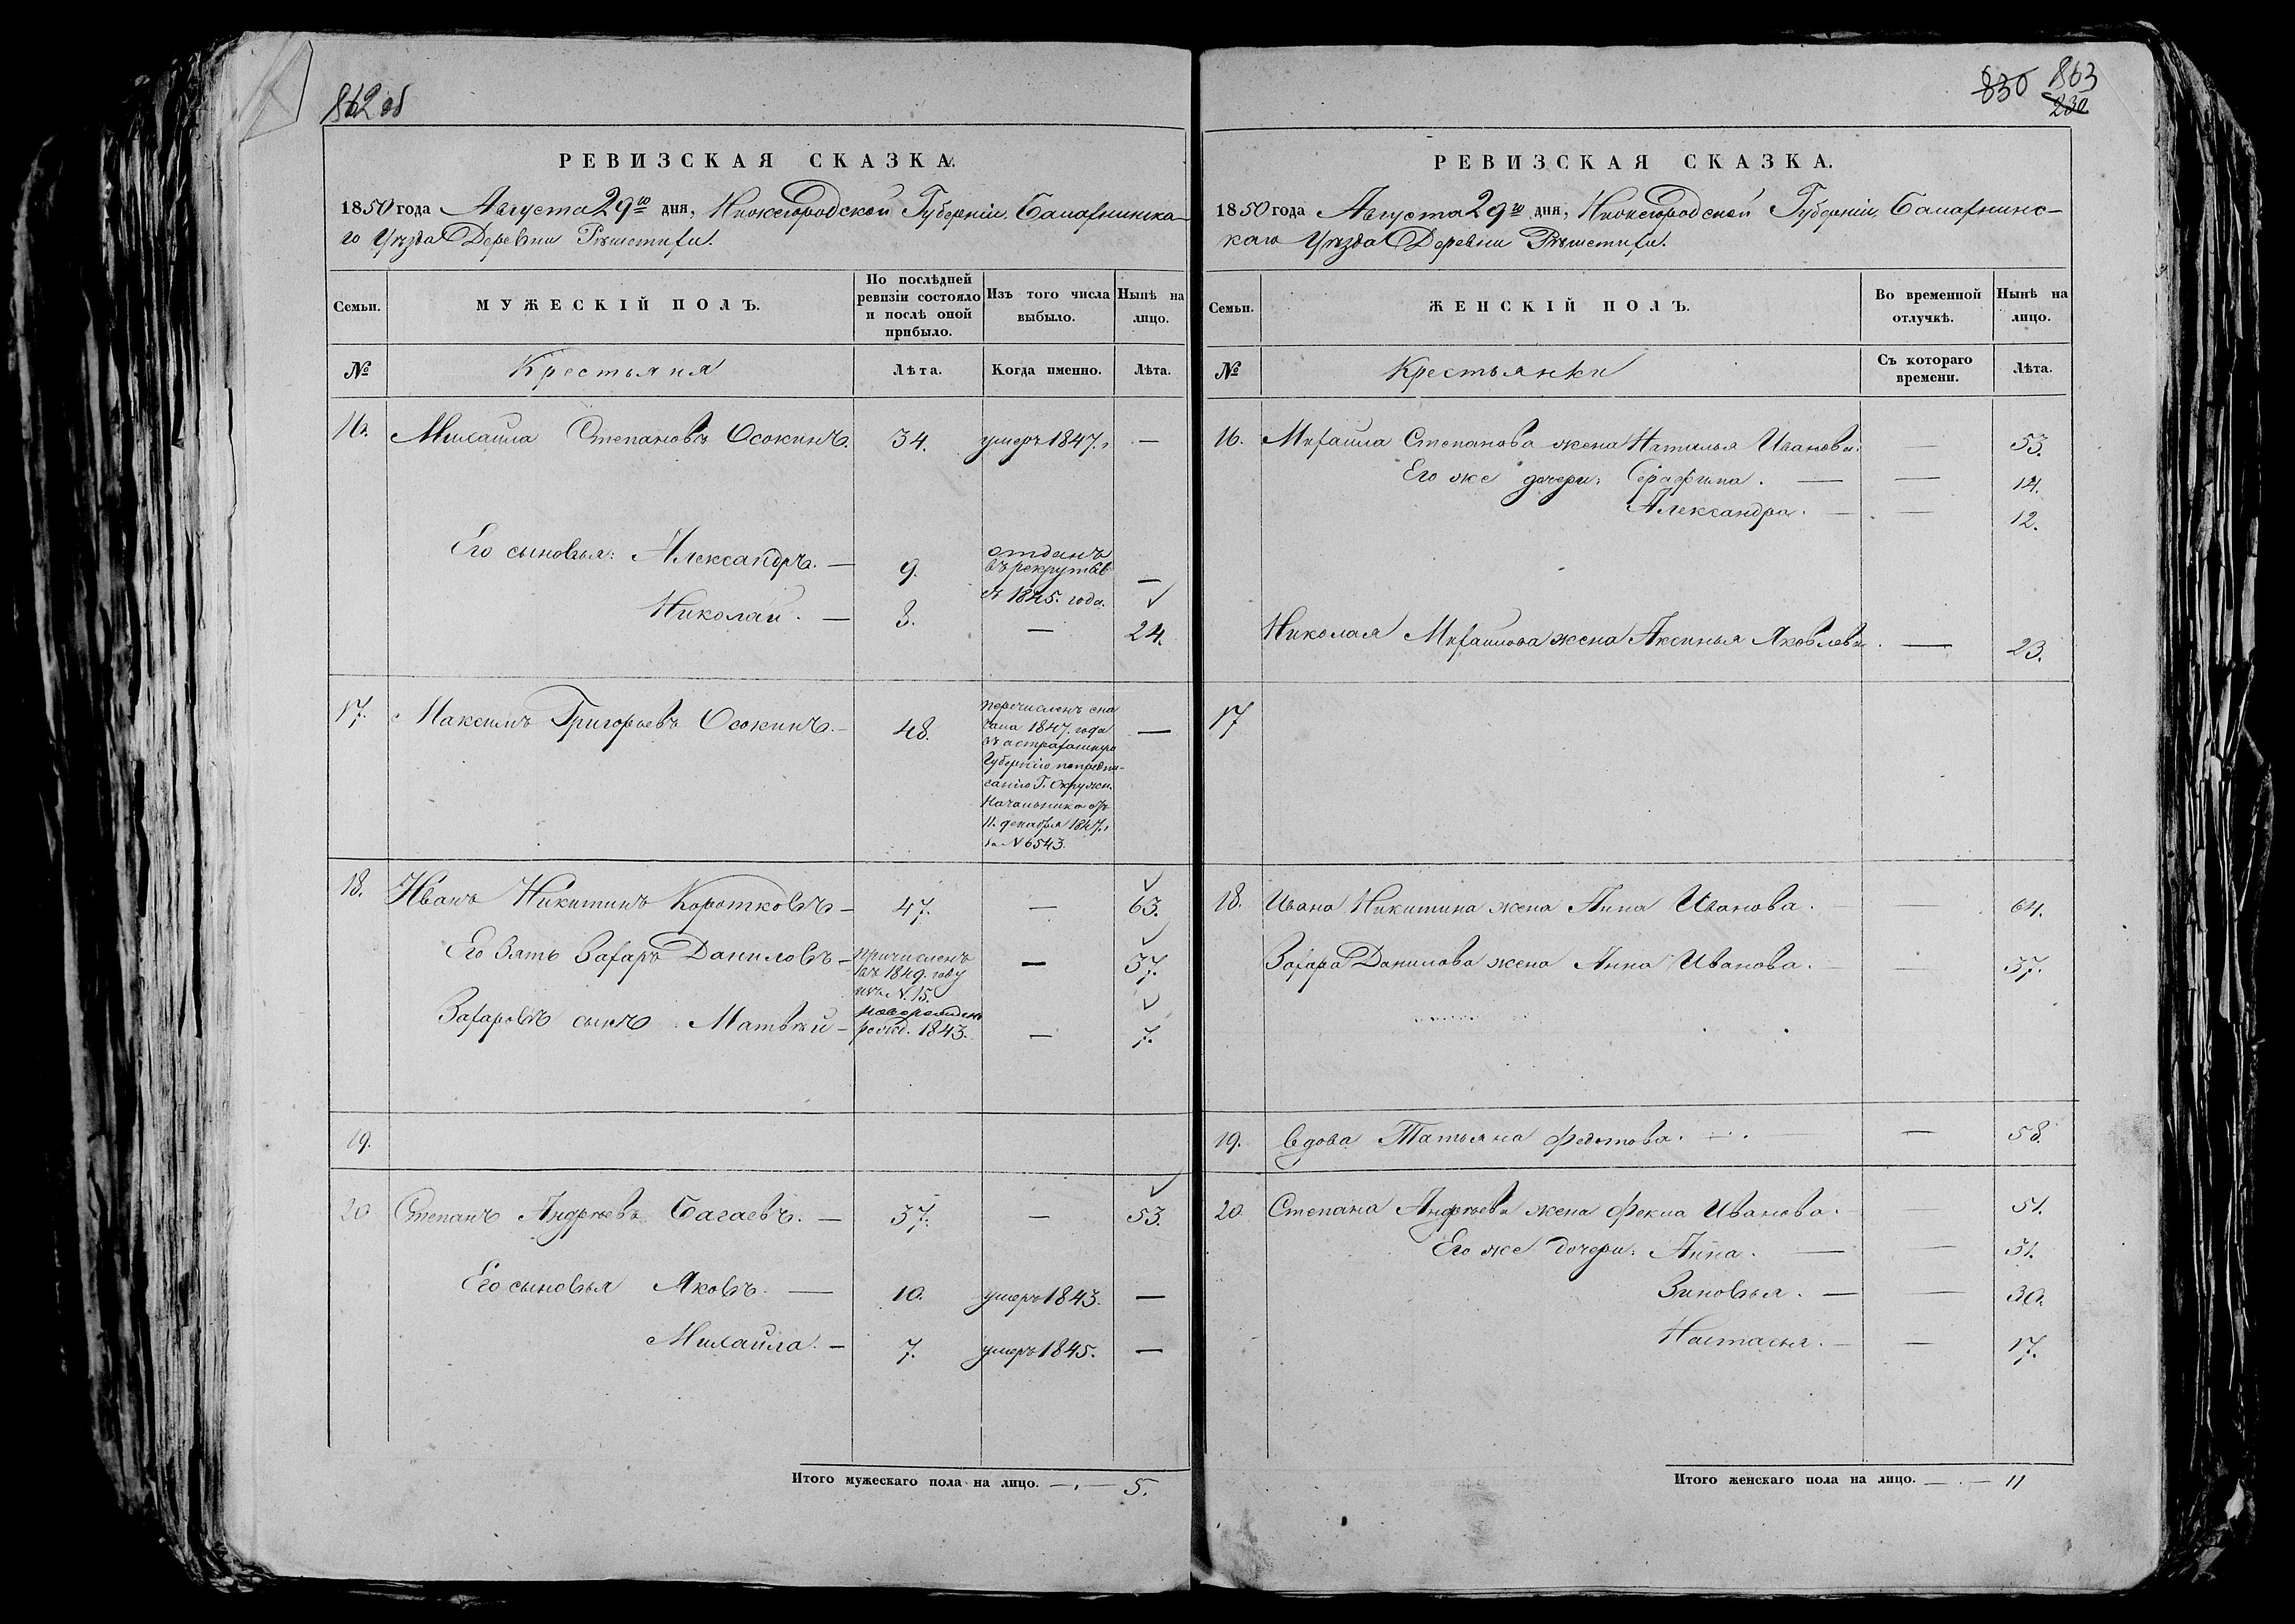 862 об
РЕВИЗСКАЯ СКАЗКА.
1850 года Августа 29го дня, Нижегородской Губернiи, Балахнинска-
го Уѣзда Деревни Рѣшетихи.
Семьи.
МУЖЕСКIЙ ПОЛЪ.
По послѣдней
ревизiи состояло
и послѣ оной
прибыло.
Изъ того числа
выбыло.
Нынѣ на
лицо.
№ Крестьяня Лѣта. Когда именно. Лѣта.
16. Михаила Степановъ Осокинъ. 34. умеръ 1847. г —
Его сыновья: Александръ. — 9. отданъ
въ рекруты
въ 1845. года. —
Николай. — 8. — 24.
17. Максимъ Григорьевъ Осокинъ. — 48. —
перечисленъ сна
чала 1847. года
въ астраханскую
Губернiю попредпи-
санiю Г. Окружн.
Начальника отъ
11. декабря 1847. г
за № 6543.
18. Иванъ Никитинъ Коротковъ — 47. — 63.
Его Зять Захаръ Даниловъ — причисленъ
въ 1849. году
изъ № 15. — 37.
Захаровъ сынъ Матвѣй — новорожден
рожд. 1843. — 7.
19.
20 Степанъ Андреевъ Багаевъ. — 37. — 53.
Его сыновья Яковъ. — 10. умеръ 1843. —
Михайла. — 7. умеръ 1845. —
Итого мужескаго пола на лицо. — 5.
830 863
230
РЕВИЗСКАЯ СКАЗКА.
1850 года Августа 29го дня, Нижегородской Губернiи Балахнинс-
каго Уѣзда Деревни Рѣшетихи.
Семьи.
ЖЕНСКIЙ ПОЛЪ.
Во временной
отлучкѣ.
Нынѣ на
лицо.
№ Крестьянки
Съ котораго
времени.
Лѣта.
16. Михаила Степанова жена Наталья Иванова. — 53.
Его же дочери: Серафима. — — 14.
Александра. — — 12.
Николая Михайлова жена Аксинья Яковлева. — 23.
17
18. Ивана Никитина жена Анна Иванова. — 64.
Захара Данилова жена Анна Иванова. — 37.
19. Вдова Татьяна Федотова. — 58.
20. Степана Андреева жена Фекла Иванова. — 51.
Его же дочери: Анна. — — 31.
Зиновья. — — 30.
Настасья. — — 17.
Итого женскаго пола на лицо. — 11